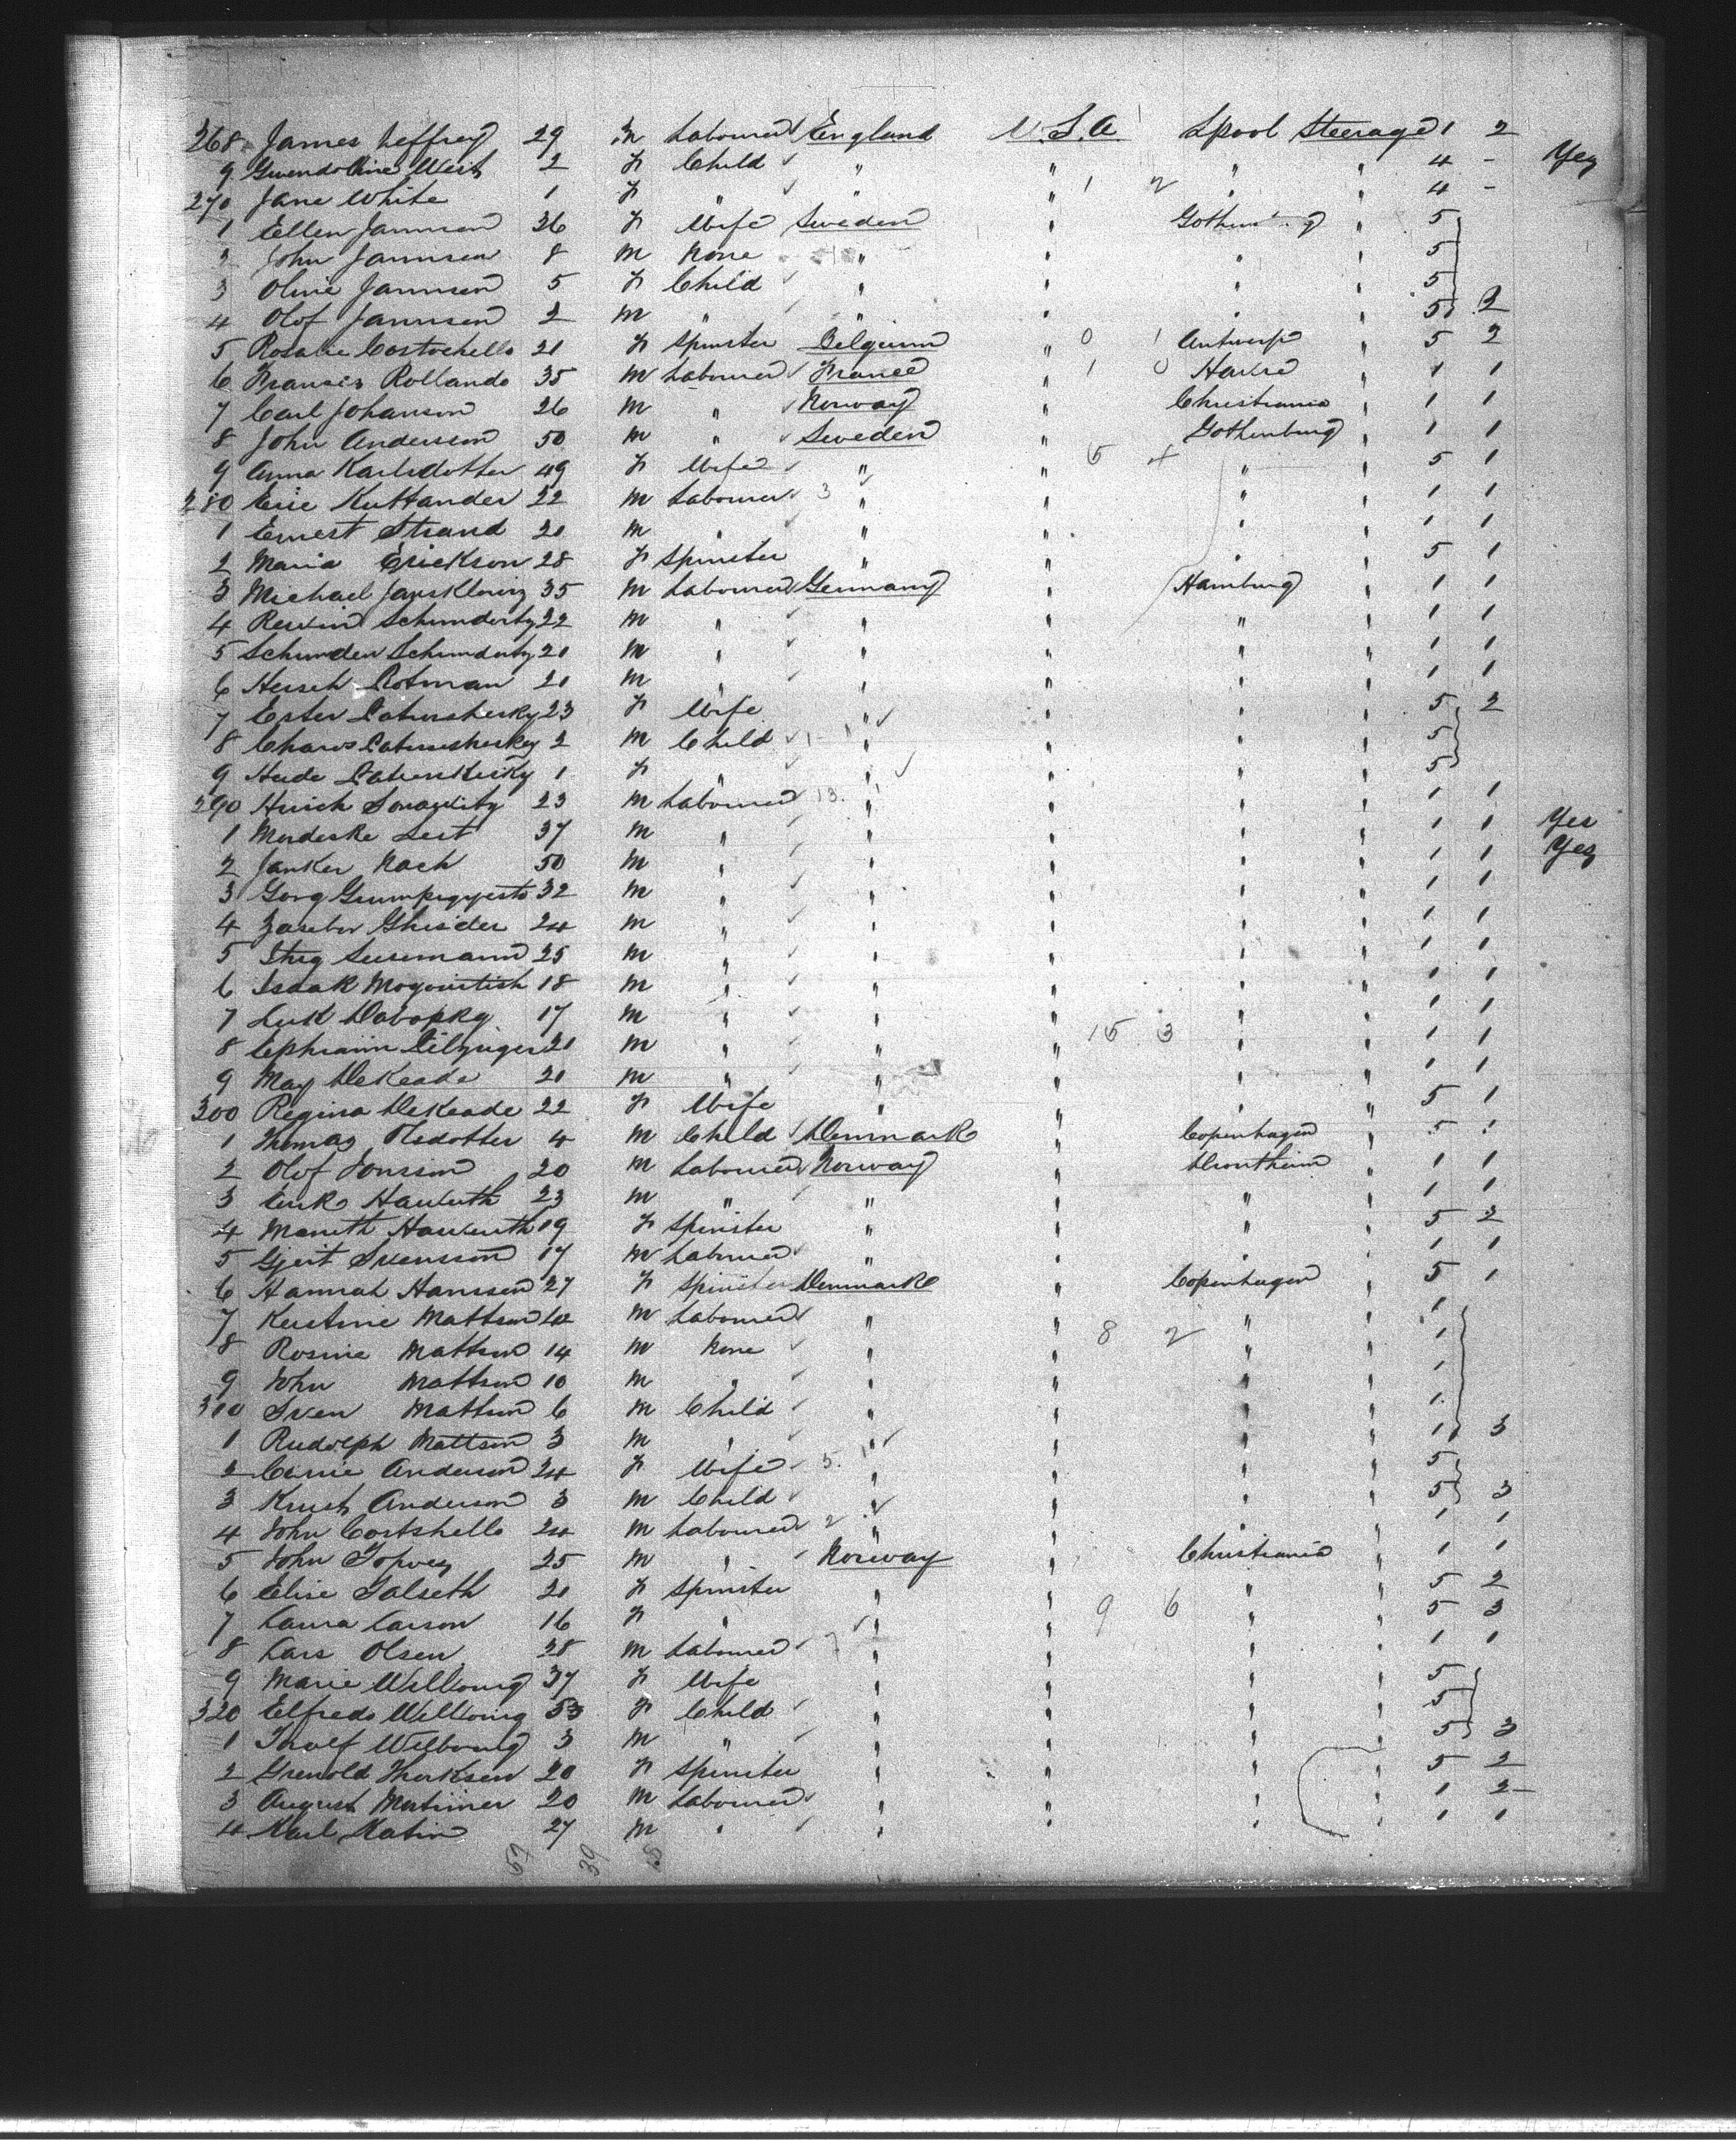 268 James Jeffrey 29 m Labourer England U.S.A. Lpool Steerage 1 2
9 Gwendoline West 2 F Child " " " " 4 - Yes
270 Jane White 1 F " " " 1 2 " " 4 -
1 Ellen Jannson 36 F Wife Sweden " " 5
2 John Jannson 8 M None " " " " 5
3 Oline Jannson 5 F Child " " " " 5
4 Olof Jannson 2 M " " " " " 5 2
5 Rosalie Costochello 21 F Spinster Belgium " 0 1 Antwerp " 5 2
6 Francis Rollando 35 M Labourer France " 1 0 Havre " 1 1
7 Carl Johanson 26 M " Norway " Christiania " 1 1
8 John Anderson 50 M " Sweden " Gothenburg " 1 1
9 Anna Karlsdotter 49 F Wife " " 5 4 " " 5 1
280 Eric Kuttander 22 M Labourer 3 " " " " 1 1
1 Ernest Strand 21 M " " " " " 1 1
2 Maria Erickson 28 F Spinster " " " " 5 1
3 Michael 35 M Labourer Germany " Hamburg " 1 1
4 22 M " " " " " 1 1
5 21 M " " " " " 1 1
6 Hersch Rotman 21 M " " " " " 1 1
7 Ester 23 F Wife " " " " 5 2
8 2 M Child " " " " 5
9 1 F " " " " " 5
290 23 M Labourer 13 " " " " 1 1
1 Mordeske Lest 37 M " " " " " 1 1 Yes
2 Janker Nach 50 M " " " " " 1 1 Yes
3 Gorg 32 M " " " " " 1 1
4 24 M " " " " " 1 1
5 25 M " " " " " 1 1
6 Isaak 18 M " " " " " 1 1
7 17 M " " " " " 1 1
8 Ephraim 21 M " " " 15 3 " " 1 1
9 May DeKeade 21 M " " " " " 1 1
300 Regina DeKeade 22 F Wife " " " " 5 1
1 Thomas 4 M Child Denmark " Copenhagen " 5 1
2 Olof Jonsson 20 M Labourer Norway " Drontheim " 1 1
3 Erik 23 M " " " " " 1 1
4 19 F Spinster " " " " 5 2
5 Gjert Svensson 17 M Labourer " " " " 1 1
6 Hannah Hanssen 27 F Spinster Denmark " Copenhagen " 5 1
7 Kerstine Mattson M Labourer " " " " 1
8 Rosnie Mattson 14 M None " " 8 2 " " 1
9 John Mattson 10 M " " " " " 1
310 Sven Mattson 6 M Child " " " " 1
1 Rudolph Mattson 3 M " " " " " 1 3
2 Carrie Anderson 24 F Wife 5 " " " " 5
3 Knust Anderson 3 M Child " " " " 5 3
4 John Costshello 24 M Labourer 2 " " " " 1 1
5 John 25 M " Norway " Christiania " 1 1
6 Elise Falseth 21 F Spinster " " " " 5 2
7 Laura Carson 16 F " " " 9 6 " " 5 3
8 Lars Olsen 28 M Labourer 7 " " " " 1 1
9 Marie Wilbourg 37 F Wife " " " " 5
320 Elfreda Wilbourg F Child " " " " 5
1 Wilbourg 3 M " " " " " 5 3
2 20 F Spinster " " " " 5 2
3 August Mortimer 20 M Labourer " " " " 1 2
4 Karl Katin 27 M " " " " " 1 1
57 39 18